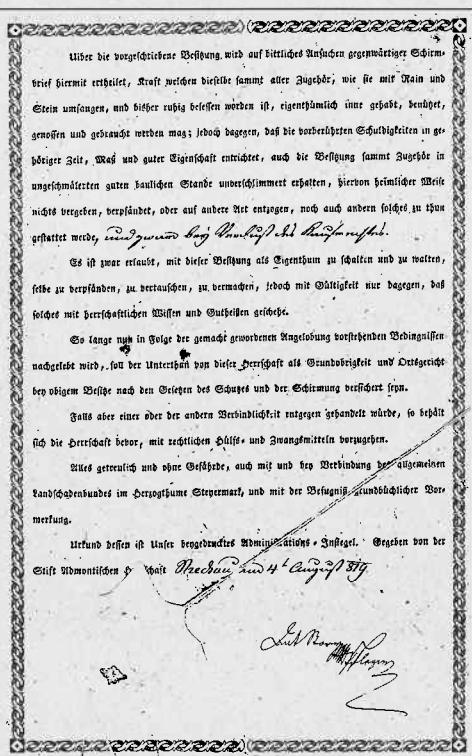 Uiber die vorgeschriebene Besitzung wird auf bittliches Ansuchen gegenwärtiger Schirm-
brief hiermit ertheilet, Kraft welchen dieselbe sammt aller Zugehör, wie sie mit Rain und
Stein umfangen, und bisher ruhig besessen worden ist, eigenthümlich inne gehabt, benützet,
genossen und gebraucht werden mag; jedoch dagegen, daß die vorberührten Schuldigkeiten in ge-
höriger Zeit, Maß und guter Eigenschaft entrichtet, auch die Besitzung sammt Zugehör in
ungeschmälerten guten baulichen Stande unverschlimmert erhalten, hiervon heimlicher Weise
nichts vergeben, verpfändet, oder auf andere Art entzogen, noch auch andern solches zu thun
gestattet werde, und zwar bey Verlust des Kaufrechtes.
Es ist zwar erlaubt, mit dieser Besitzung als Eigenthum zu schalten und zu walten,
selbe zu verpfänden, zu vertauschen, zu vermachen, jedoch mit Gültigkeit nur dagegen, daß
solches mit herrschaftlichen Wissen und Gutheißen geschehe.
So lange nun in Folge der gemacht gewordenen Angelobung vorstehenden Bedingnissen
nachgelebt wird, soll der Unterthan von dieser Herrschaft als Grundobrigkeit und Ortsgericht
bey obigem Besitze nach den Gesetzen des Schutzes und der Schirmung versichert seyn.
Falls aber einer oder der andern Verbindlichkeit entgegen gehandelt würde, so behält
sich die Herrschaft bevor, mit rechtlichen Hülfs- und Zwangsmitteln vorzugehen.
Alles getreulich und ohne Gefährde, auch mit und bey Verbindung des allgemeinen
Landschadenbundes im Herzogthume Steyermark, und mit der Befugniß grundbüchlicher Vor-
merkung.
Urkund dessen ist Unser beygedrucktes Administrations-Insiegel. Gegeben von der
Stift Admontischen Herrschaft Strechau am 4t August 819